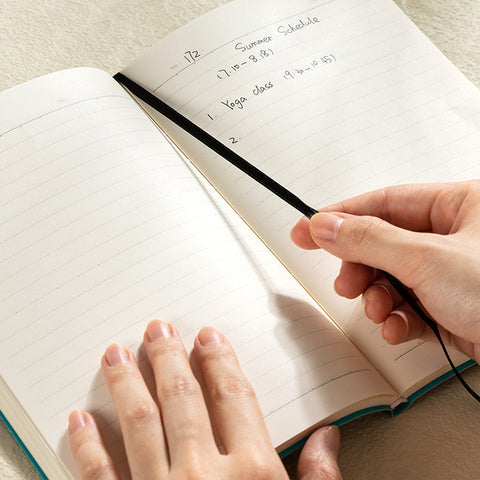 NO. 172
Summer Schedule
(7.10 - 8.18)
1. Yoga class (9:30 - 10:45)
2.